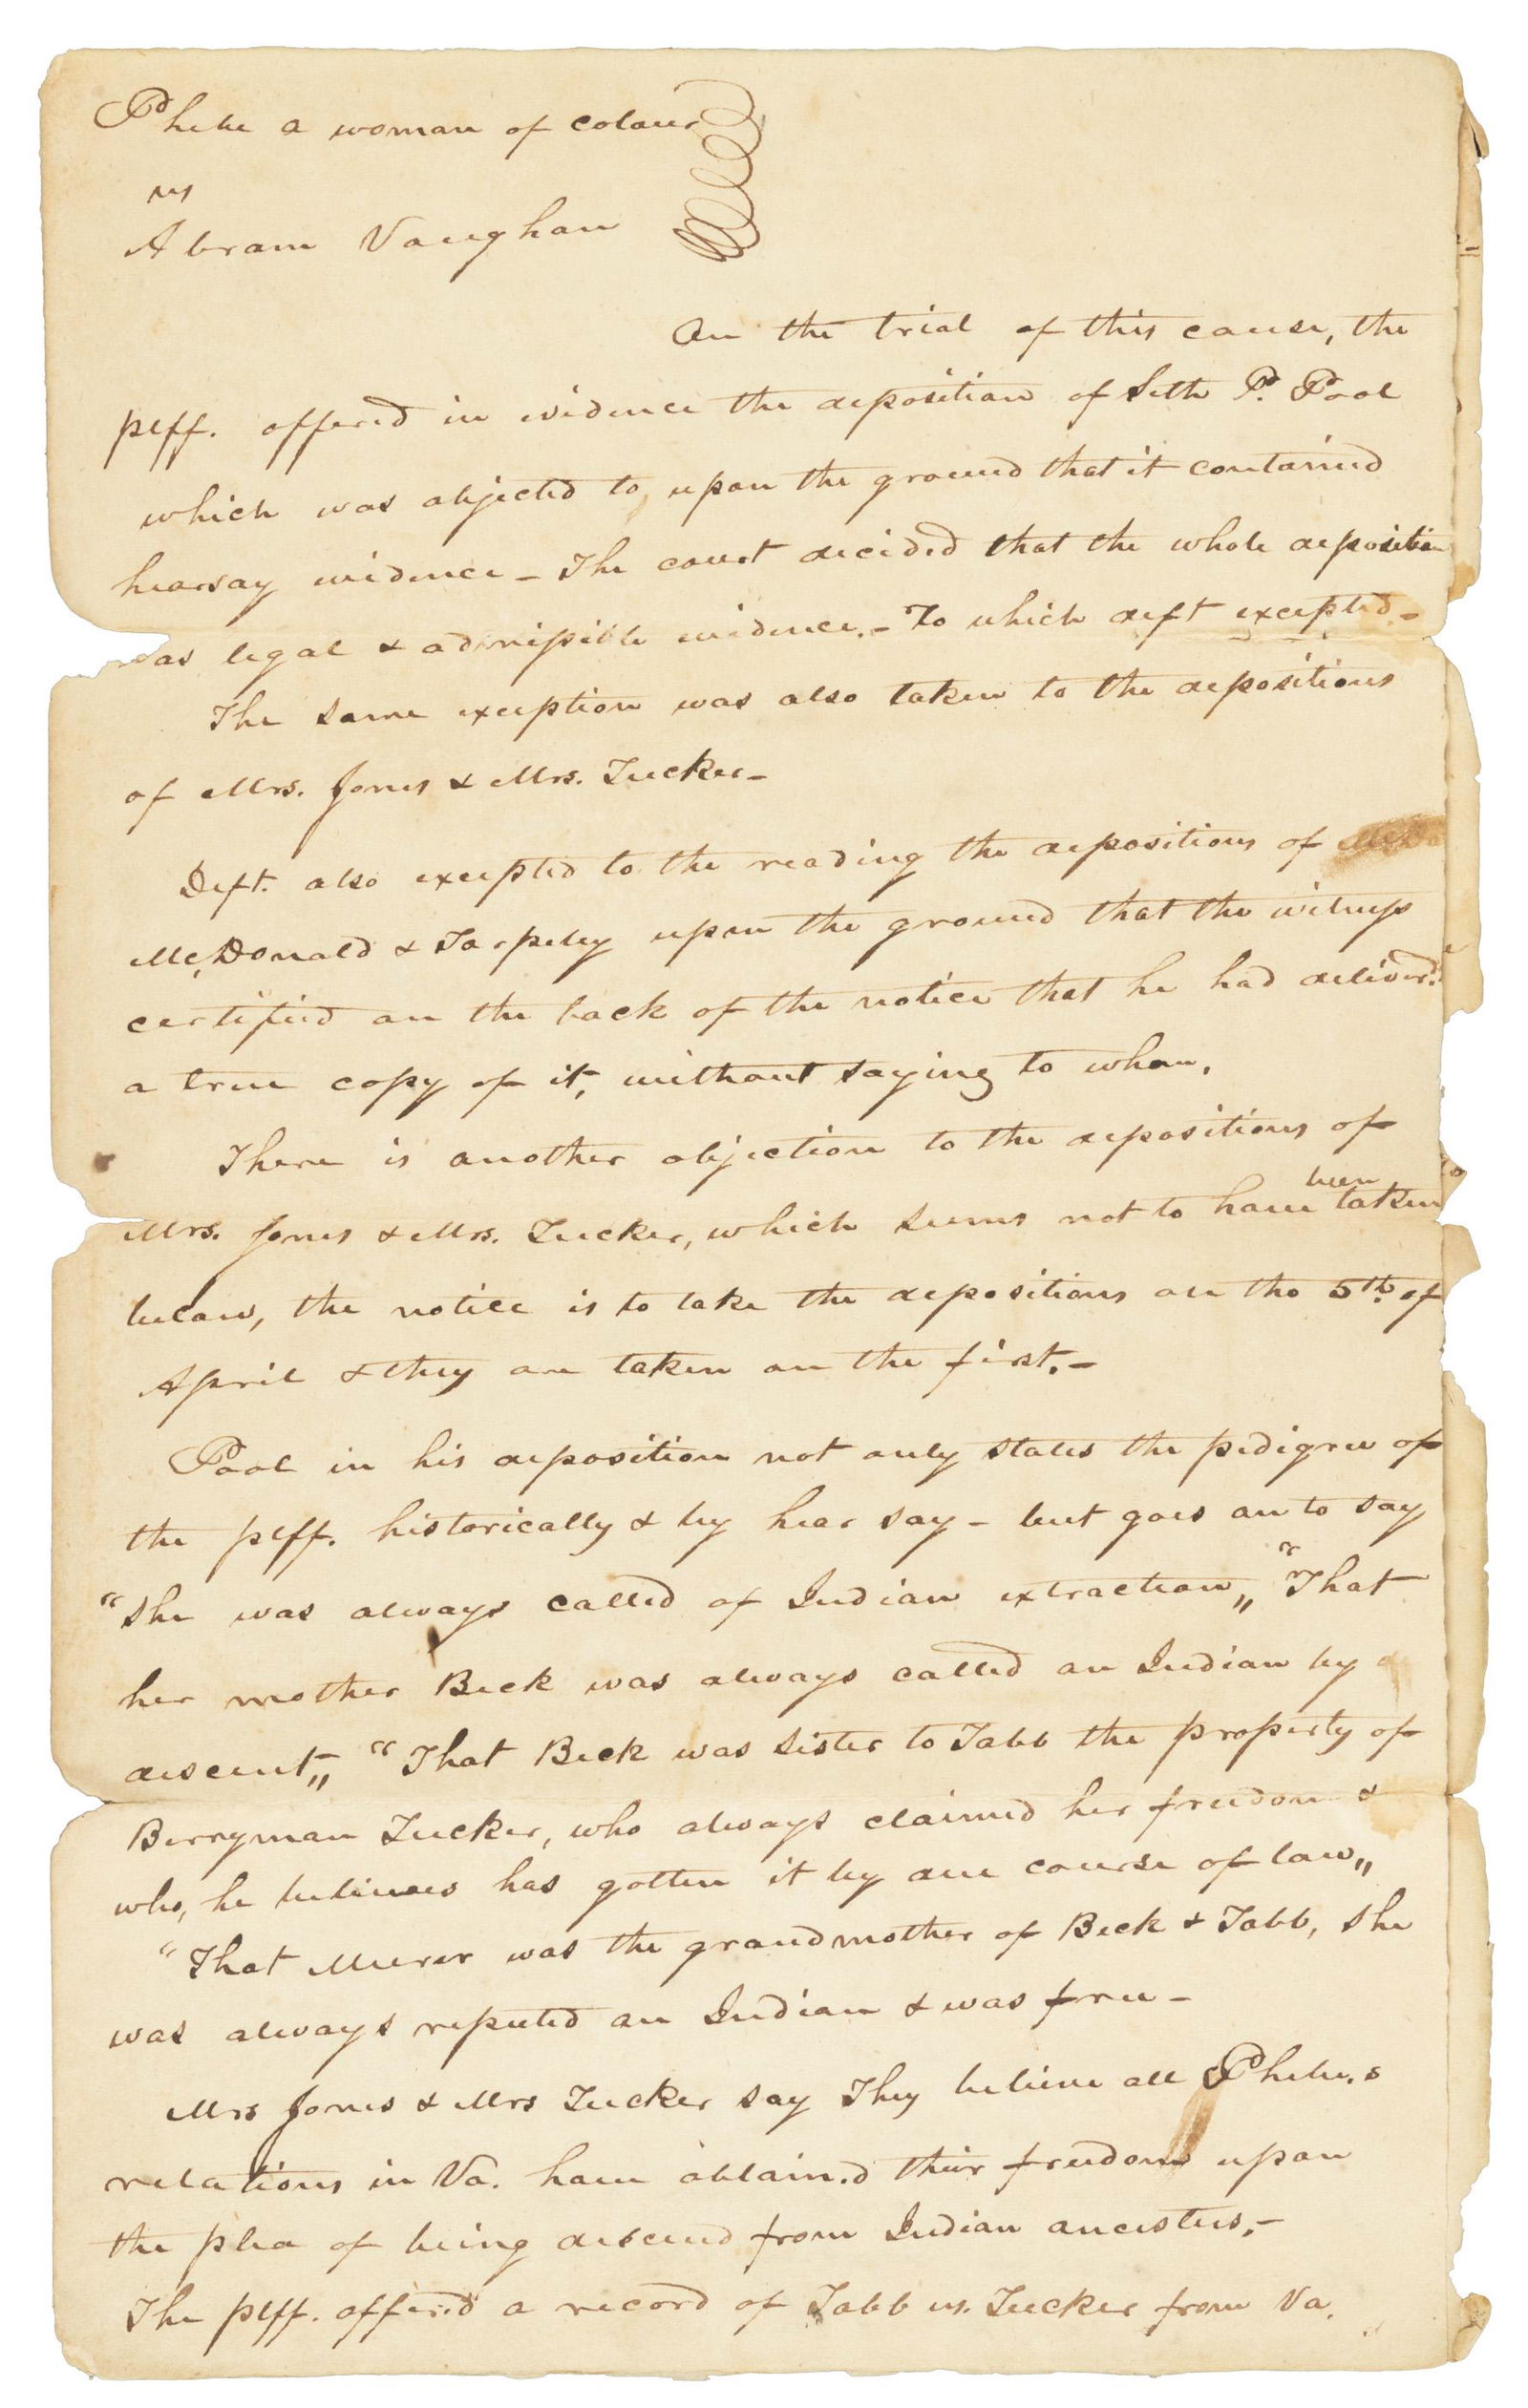 Phebe a woman of colour
vs
Abram Vaughan
On the trial of this cause, the
plff. offered in evidence the deposition of Seth P. Pool
which was objected to, upon the ground that it contained
hearsay evidence - The court decided that the whole deposition
was legal & admissible evidence. - To which deft excepted -
The same exception was also taken to the depositions
of Mrs. Jones & Mrs. Tucker -
Deft. also excepted to the reading the depositions of
McDonald & Tarpley upon the ground that the witness
certified on the back of the notice that he had deliver.d
a true copy of it, without saying to whom.
There is another objection to the depositions of
Mrs. Jones & Mrs. Tucker, which seems not to have been taken
below, the notice is to take the depositions on the 5th. of
April & they are taken on the first. -
Pool in his deposition not only states the pedigree of
the plff. historically & by hear say - but goes on to say
"she was always called of Indian extraction„ "That
her mother Beck was always called an Indian by
descent„ "That Beck was sister to Tabb the property of
Berryman Tucker, who always claimed her freedom &
who, he believes has gotten it by due course of law„
"That Murer was the grandmother of Beck & Tabb, she
was always reputed an Indian & was free -
Mrs Jones & Mrs Tucker say They believe all Phebe.s
relations in Va. have obtain.d their freedom upon
the plea of being descend from Indian ancesters, -
The plff. offer.d a record of Tabb vs. Tucker from Va.